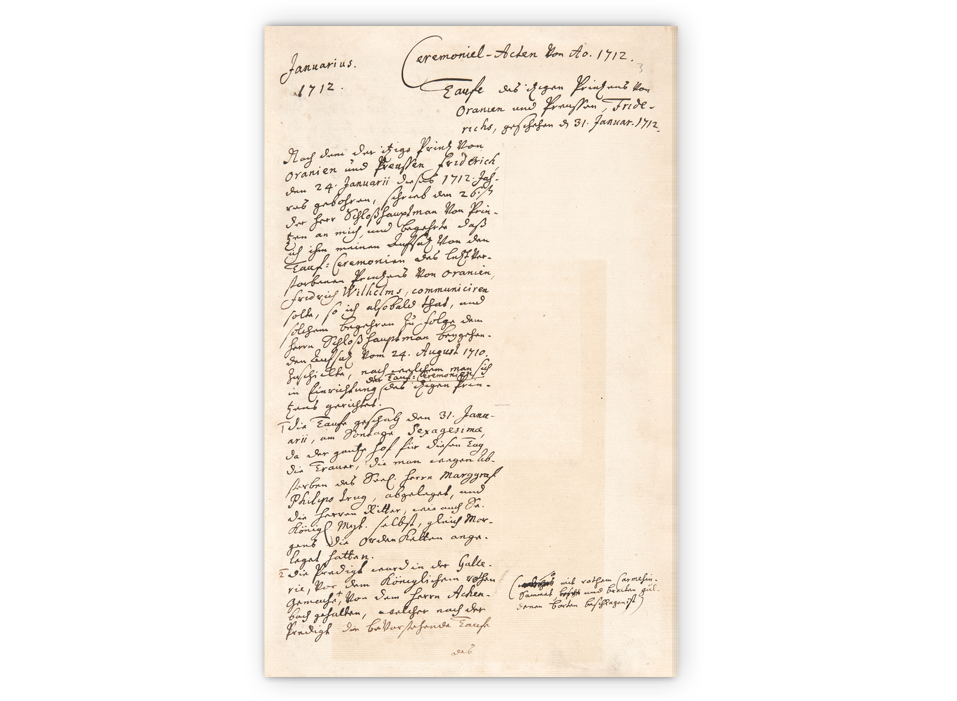 Januarius.
1712.
Ceremoniel-Acten Von Ao. 1712.
3
Taufe des itzigen Printzens Von
Oranien und Preussen, Fride-
richs, geschehen d 31. Januar. 1712.
Nach dem der itzige Printz Von
Oranien und Preussen Friderich,
den 24. Januarii dieses 1712. Jah-
res gebohren, schrieb den 26.
der Herr Schloßhauptman Von Prin-
tzen an mich, und begehrte daß
ich ihm meinen Auffsatz Von den
Tauf-Ceremonien des letzt Ver-
storbenen Printzens Von Oranien,
Fridrich Wilhelms, communiciren
solte, so ich alsobald that, und
solchem begehren zu folge dem
Herrn Schloßhauptman beygehen-
den Auffsatz Vom 24. August 1710.
zuschickte, nach welchem man sich
in Einrichtung der Tauf-Ceremonien des itzigen Prin-
tzens gerichtet.
1 Die Taufe geschah den 31. Janu-
arii, am Sontage Sexagesima,
da der gantze Hof für diesen Tag
die Trauer, die man wegen ab-
sterben des Seel. Herrn Marggraf
Philips trug, abgeleget, und
die Herren Ritter, wie auch Se.
Königl. Myt. selbst, gleich Mor-
gens die Orden Ketten ange-
leget hatten.
2 Die Predigt ward in der Galle-
rie, Vor dem Königlichen rothen
Gemache, Von dem Herrn Achen-
bach gehalten, welcher nach der
Predigt die beVorstehende Taufe
(mit rothem Carmesin-
Sammet und breiten gül-
denen Borten beschlagen ist)
des